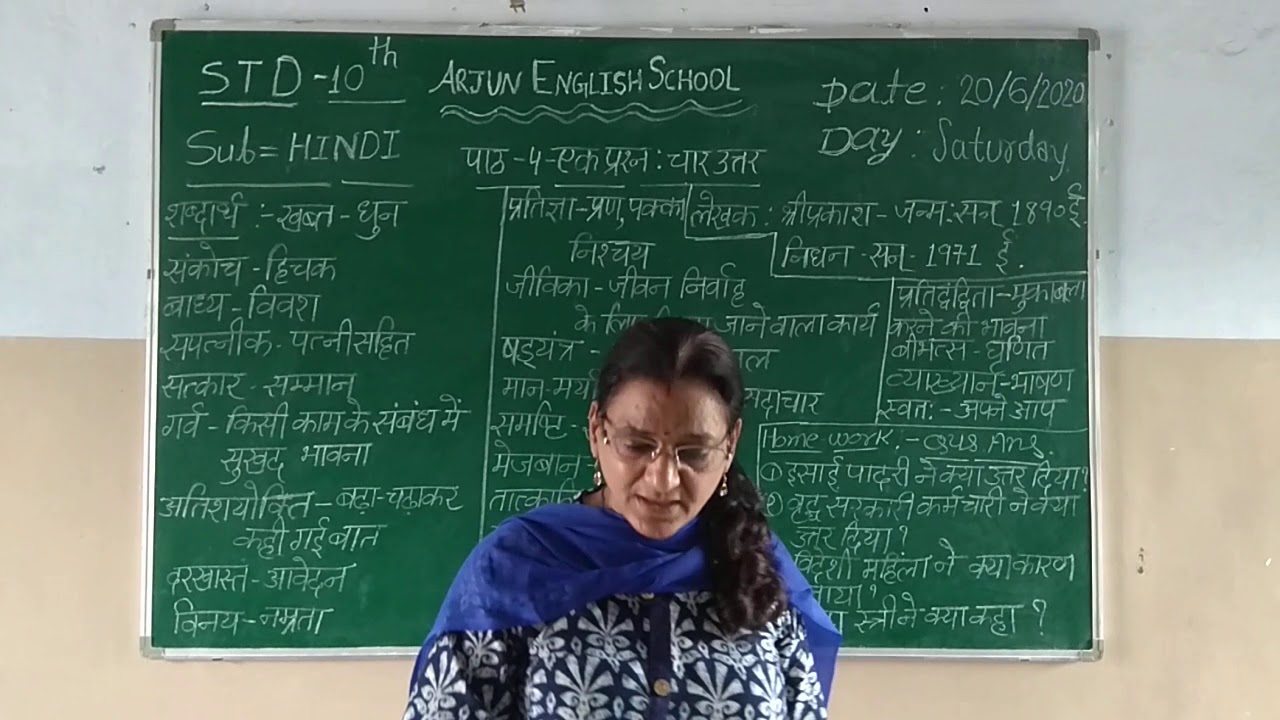 STD - 10th
ARJUN ENGLISH SCHOOL
Date : 20/6/2020
Sub = HINDI
Day : Saturday
पाठ - 4 - एक प्रश्न : चार उत्तर
शब्दार्थ :- खब्त - धुन
संकोच - हिचक
बाध्य - विवश
सपत्नीक - पत्नीसहित
सत्कार - सम्मान
गर्व - किसी काम के संबंध में
सुखद भावना
अतिशयोक्ति - बढ़ा-चढ़ाकर
कही गई बात
दरखास्त - आवेदन
विनय - नम्रता
प्रतिज्ञा - प्रण, पक्का
निश्चय
जीविका - जीवन निर्वाह
के जाने वाला कार्य
षड्यंत्र -
मान-मर्या सदाचार
समष्टि -
मेजबान -
लेखक : श्रीप्रकाश - जन्म : सन् 1890 ई.
निधन - सन् - 1971 ई.
प्रतिद्वंद्विता - मुकाबला
करने की भावना
बीभत्स - घृणित
व्याख्यान - भाषण
स्वतः - अपने आप
Home work :- Que Ans.
① इसाई पादरी ने क्या उत्तर दिया?
② वृद्ध सरकारी कर्मचारी ने क्या
उत्तर दिया?
विदेशी महिला ने क्या कारण
स्त्री ने क्या कहा ?